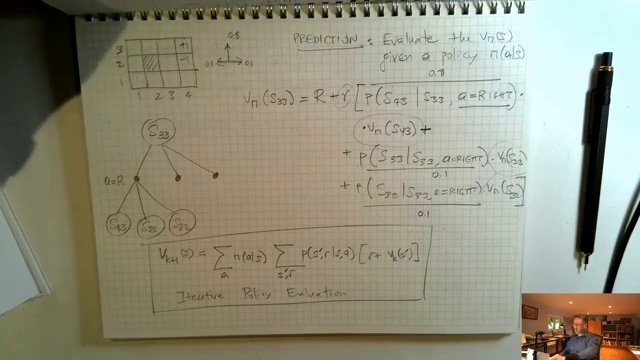 PREDICTION : Evaluate the Vπ(s)
given a policy π(a|s)
3
2
1
1 2 3 4
+1
-1
0.8
0.1 0.1
0.8
Vπ(S33) = R + γ [ p(S43 | S33, a=RIGHT) ·
· Vπ(S43) +
+ p(S33 | S33, a=RIGHT) · Vπ(S33)
0.1
+ p(S32 | S33, a=RIGHT) · Vπ(S32) ]
0.1
S33
a=R
S43 S33 S32
Vk+1(s) = Σa π(a|s) Σs',r p(s',r|s,a) [ r + Vk(s') ]
Iterative Policy Evaluation